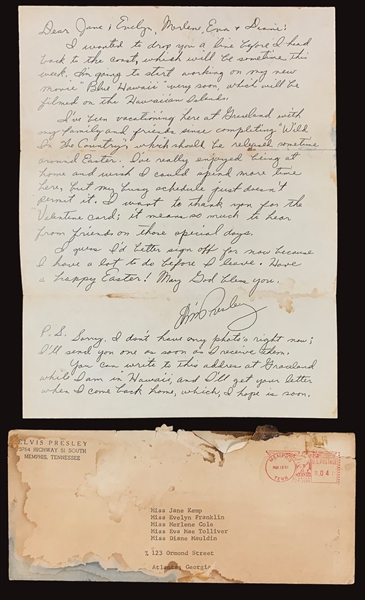 Dear Jane, Evelyn, Merlene, Eva & Diane:
I wanted to drop you a line before I head
back to the coast, which will be sometime this
week. I'm going to start working on my new
movie "Blue Hawaii" very soon, which will be
filmed on the Hawaiian Islands.
I've been vacationing here at Graceland with
my family and friends since completing "Wild
In The Country", which should be released sometime
around Easter. I've really enjoyed being at
home and wish I could spend more time
here, but my busy schedule just doesn't
permit it. I want to thank you for the
Valentine card; it means so much to hear
from friends on those special days.
I guess I'd better sign off for now because
I have a lot to do before I leave. Have
a happy Easter! May God bless you.
Elvis Presley
P.S. Sorry, I don't have any photo's right now;
I'll send you one as soon as I receive them.
You can write to this address at Graceland
while I am in Hawaii, and I'll get your letter
when I come back home, which, I hope is soon.
ELVIS PRESLEY
3764 HIGHWAY 51 SOUTH
MEMPHIS, TENNESSEE
MEMPHIS
TENN.
04
Miss Jane Kemp
Miss Evelyn Franklin
Miss Merlene Cole
Miss Eva Mae Tolliver
Miss Diane Mauldin
% 123 Ormond Street
Atlanta, Georgia